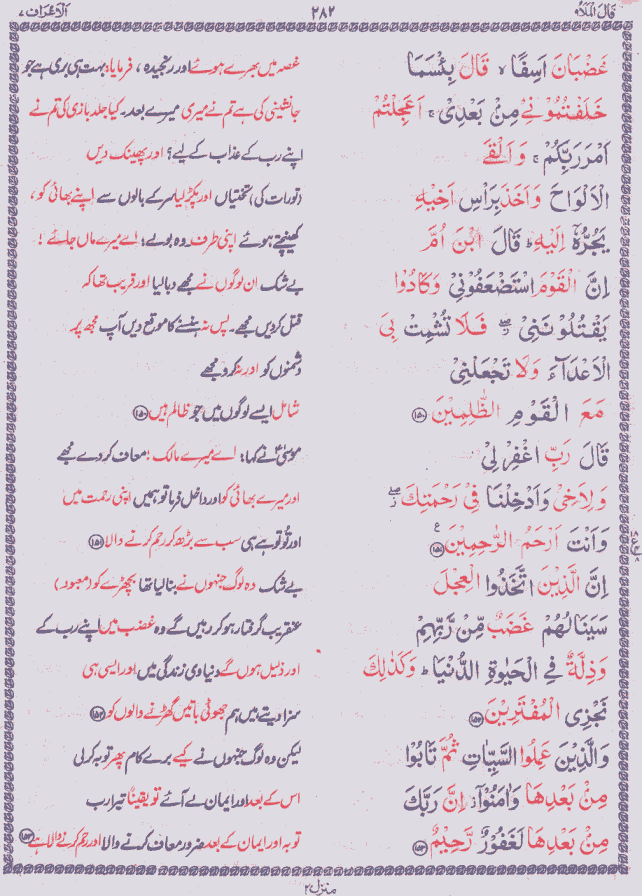 قَالَ الْمَلَاُ ٩
٢٨٢
اَلْاَعْرَاف ٧
غَضْبَانَ اَسِفًا ۙ قَالَ بِئْسَمَا
غصہ میں بھرے ہوئے اور رنجیدہ ، فرمایا: بہت ہی بری ہے جو
خَلَفْتُمُوْنِيْ مِنْۢ بَعْدِيْ ۚ اَعَجِلْتُمْ
جانشینی کی ہے تم نے میری میرے بعد۔ کیا جلد بازی کی تم نے
اَمْرَ رَبِّكُمْ ۚ وَاَلْقَى
اپنے رب کے عذاب کے لیے؟ اور پھینک دیں
الْاَلْوَاحَ وَاَخَذَ بِرَاْسِ اَخِيْهِ
(تورات کی) تختیاں اور پکڑ لیا سر کے بالوں سے اپنے بھائی کو،
يَجُرُّهٗۤ اِلَيْهِ ؕ قَالَ ابْنَ اُمَّ
کھینچتے ہوئے اپنی طرف وہ بولے: اے میرے ماں جائے !
اِنَّ الْقَوْمَ اسْتَضْعَفُوْنِيْ وَكَادُوْا
بے شک ان لوگوں نے مجھے دبا لیا اور قریب تھا کہ
يَقْتُلُوْنَنِيْ ۖ فَلَا تُشْمِتْ بِيَ
قتل کر دیں مجھے۔ پس نہ ہنسنے کا موقع دیں آپ مجھ پر
الْاَعْدَآءَ وَلَا تَجْعَلْنِيْ
دشمنوں کو اور نہ کرو مجھے
مَعَ الْقَوْمِ الظّٰلِمِيْنَ ﴿١٥٠﴾
شامل ایسے لوگوں میں جو ظالم ہیں ﴿١٥٠﴾
قَالَ رَبِّ اغْفِرْ لِيْ
موسیٰؑ نے کہا: اے میرے مالک! معاف کر دے مجھے
وَلِاَخِيْ وَاَدْخِلْنَا فِيْ رَحْمَتِكَ ۖ
اور میرے بھائی کو اور داخل فرما تو ہمیں اپنی رحمت میں
وَاَنْتَ اَرْحَمُ الرّٰحِمِيْنَ ﴿١٥١﴾
اور تُو تو ہے ہی سب سے بڑھ کر رحم کرنے والا ﴿١٥١﴾
اِنَّ الَّذِيْنَ اتَّخَذُوا الْعِجْلَ
بے شک وہ لوگ جنہوں نے بنا لیا تھا بچھڑے کو (معبود)
سَيَنَالُهُمْ غَضَبٌ مِّنْ رَّبِّهِمْ
عنقریب گرفتار ہو کر رہیں گے وہ غضب میں اپنے رب کے
وَذِلَّةٌ فِي الْحَيٰوةِ الدُّنْيَا ؕ وَكَذٰلِكَ
اور ذلیل ہوں گے دنیاوی زندگی میں اور ایسی ہی
نَجْزِي الْمُفْتَرِيْنَ ﴿١٥٢﴾
سزا دیتے ہیں ہم جھوٹی باتیں گھڑنے والوں کو ﴿١٥٢﴾
وَالَّذِيْنَ عَمِلُوا السَّيِّاٰتِ ثُمَّ تَابُوْا
لیکن وہ لوگ جنہوں نے کیے برے کام پھر توبہ کر لی
مِنْۢ بَعْدِهَا وَاٰمَنُوْۤا ز اِنَّ رَبَّكَ
اس کے بعد اور ایمان لے آئے تو یقینًا تیرا رب
مِنْۢ بَعْدِهَا لَغَفُوْرٌ رَّحِيْمٌ ﴿١٥٣﴾
توبہ اور ایمان کے بعد ضرور معاف کرنے والا اور رحم کرنے والا ہے ﴿١٥٣﴾
منزل ٢